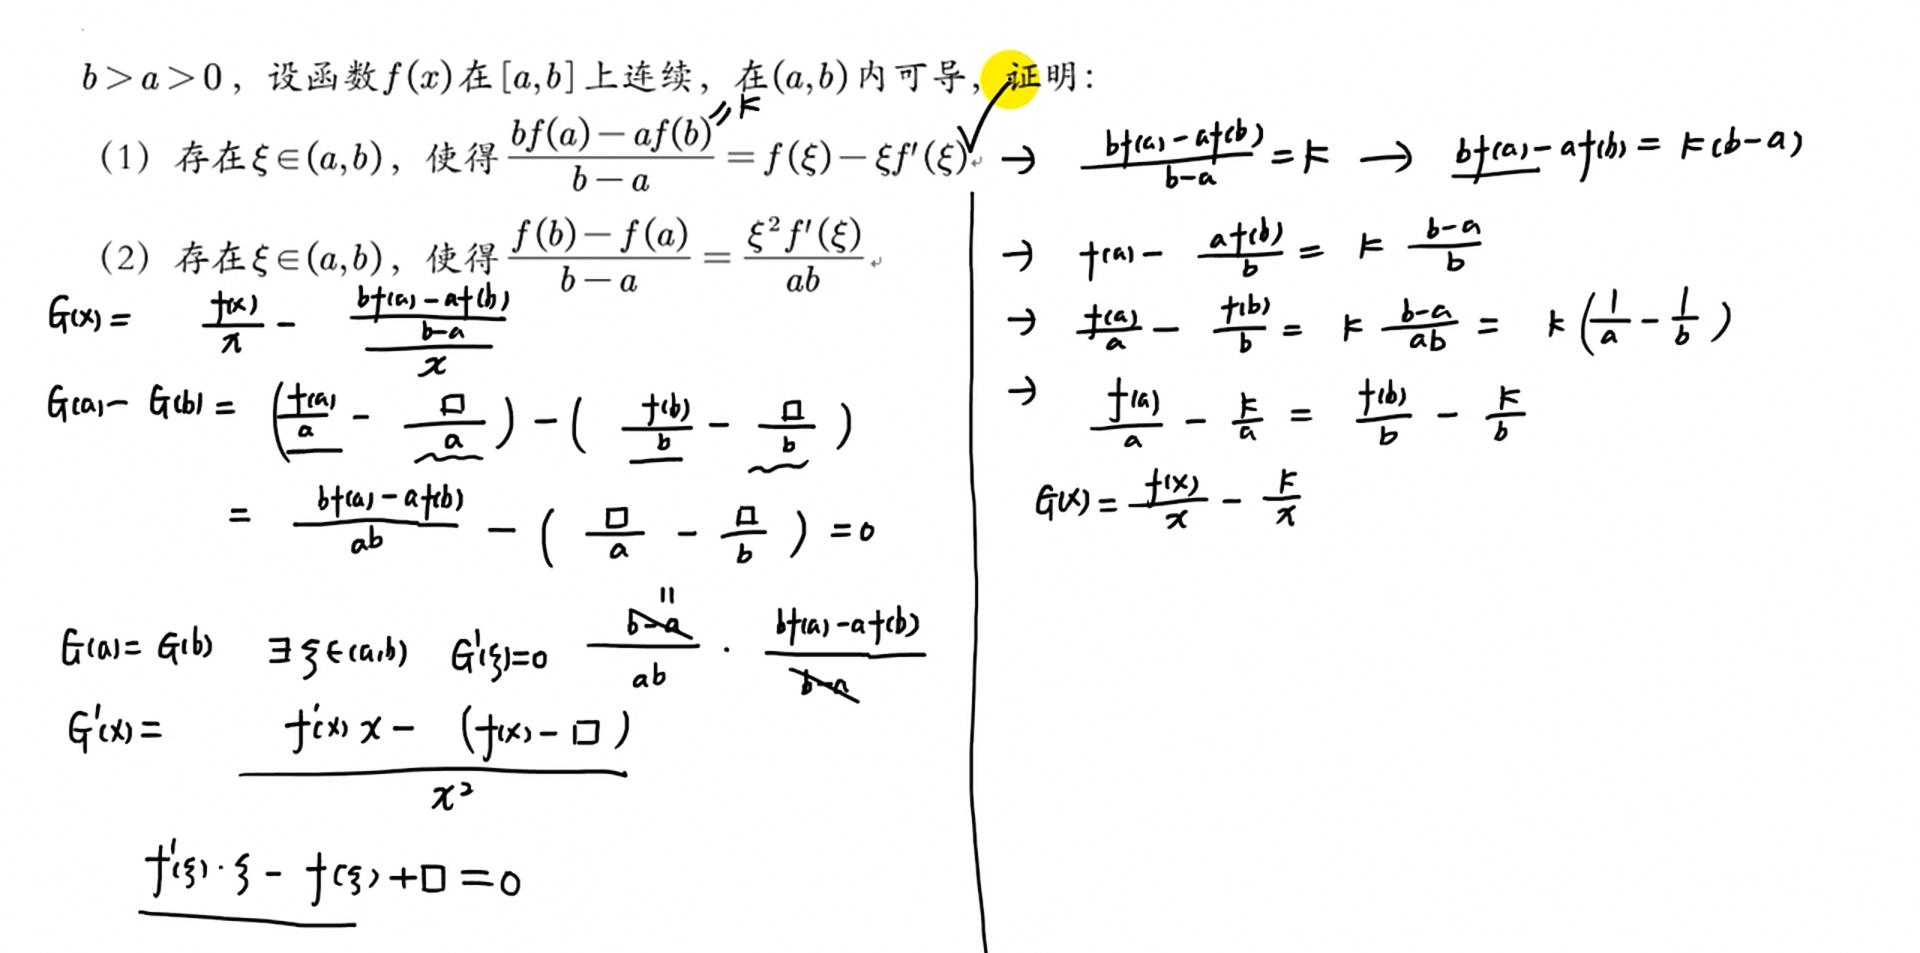 b>a>0，设函数f(x)在[a,b]上连续，在(a,b)内可导，证明：
=k
（1）存在ξ∈(a,b)，使得(bf(a)−af(b))/(b−a)=f(ξ)−ξf′(ξ)
（2）存在ξ∈(a,b)，使得(f(b)−f(a))/(b−a)=ξ²f′(ξ)/ab
G(x)= f(x)/x − ((bf(a)−af(b))/(b−a))/x
G(a)− G(b)= (f(a)/a − □/a) − (f(b)/b − □/b)
= (bf(a)−af(b))/ab − (□/a − □/b) =0
=
G(a)= G(b) ∃ξ∈(a,b) G′(ξ)=0 (b−a)/ab · (bf(a)−af(b))/(b−a)
G′(x)= (f′(x)x − (f(x)−□))/x²
f′(ξ)·ξ − f(ξ)+□=0
→ (bf(a)−af(b))/(b−a)=k → bf(a)−af(b)=k(b−a)
→ f(a)− af(b)/b = k (b−a)/b
→ f(a)/a − f(b)/b = k (b−a)/ab = k(1/a − 1/b)
→ f(a)/a − k/a = f(b)/b − k/b
G(x)= f(x)/x − k/x